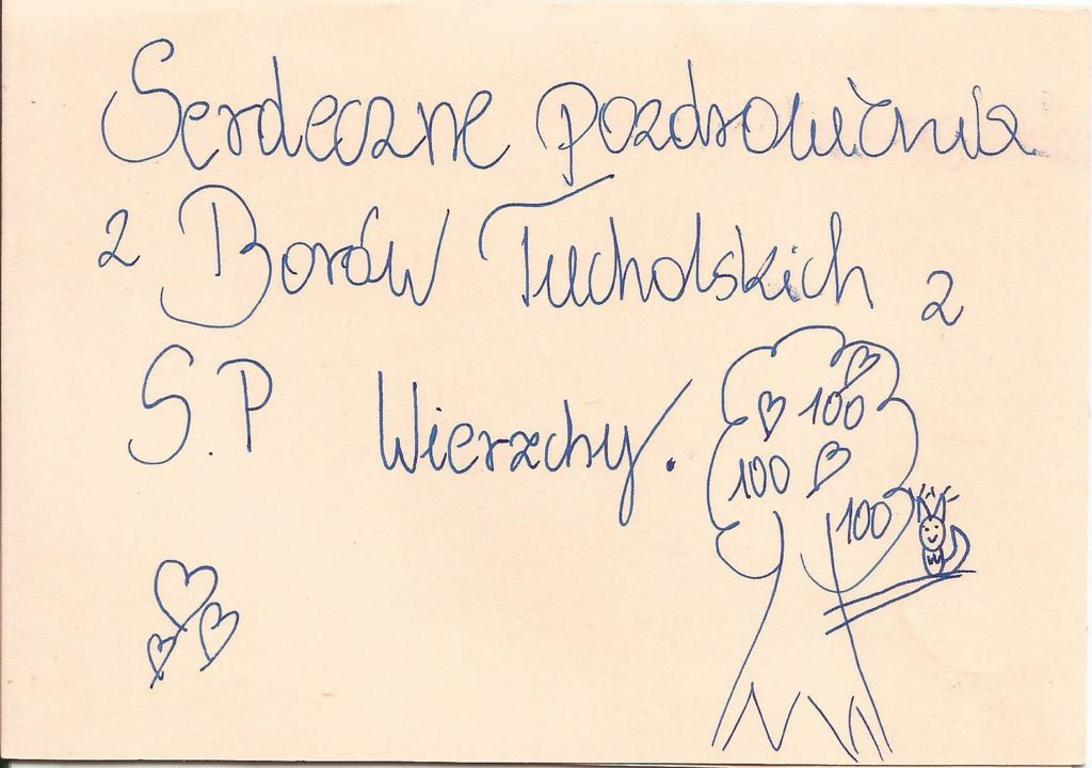 Serdeczne pozdrowienia
z Borów Tucholskich z
S.P Wierzchy.
100
100
100